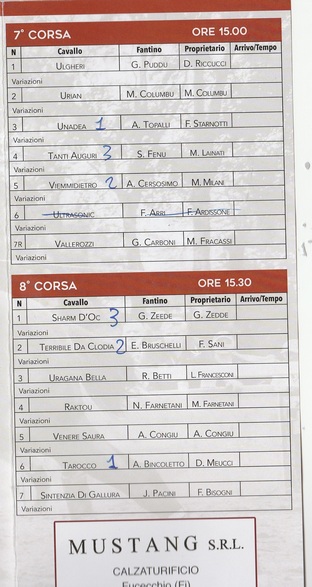 7° CORSA ORE 15.00
N Cavallo Fantino Proprietario Arrivo/Tempo
1 ULGHERI G. PUDDU D. RICCUCCI
Variazioni
2 URIAN M. COLUMBU M. COLUMBU
Variazioni
3 UNADEA 1 A. TOPALLI F. STARNOTTI
Variazioni
4 TANTI AUGURI 3 S. FENU M. LAINATI
Variazioni
5 VIEMMIDIETRO 2 A. CERSOSIMO M. MILANI
Variazioni
6 ULTRASONIC F. ARRI F. ARDISSONE
Variazioni
7R VALLEROZZI G. CARBONI M. FRACASSI
Variazioni
8° CORSA ORE 15.30
N Cavallo Fantino Proprietario Arrivo/Tempo
1 SHARM D'OC 3 G. ZEEDE G. ZEDDE
Variazioni
2 TERRIBILE DA CLODIA 2 E. BRUSCHELLI F. SANI
Variazioni
3 URAGANA BELLA R. BETTI L. FRANCESCONI
Variazioni
4 RAKTOU N. FARNETANI M. FARNETANI
Variazioni
5 VENERE SAURA A. CONGIU A. CONGIU
Variazioni
6 TAROCCO 1 A. BINCOLETTO D. MEUCCI
Variazioni
7 SINTENZIA DI GALLURA J. PACINI F. BISOGNI
Variazioni
MUSTANG S.R.L.
CALZATURIFICIO
Fucecchio (Fi)